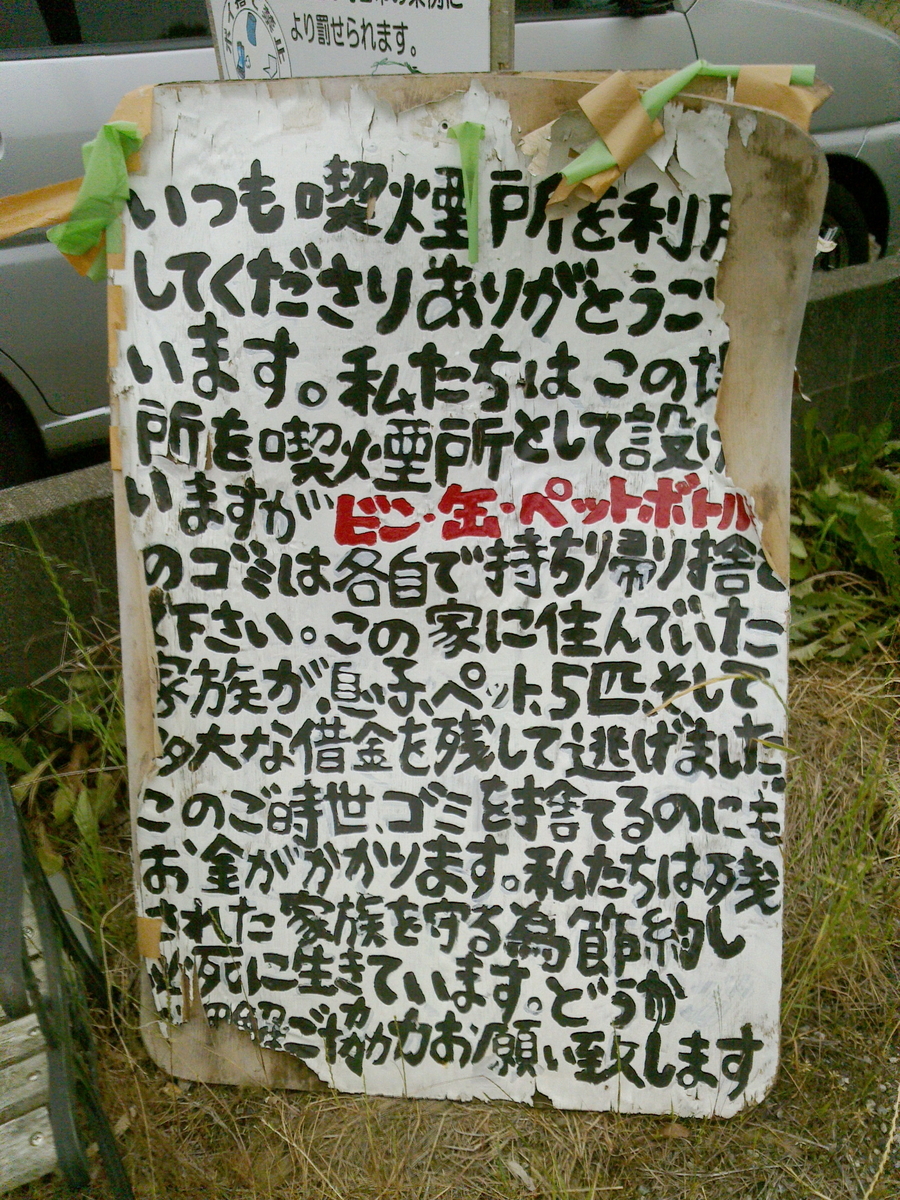 ポイ捨て禁止
より罰せられます。
いつも喫煙所を利用
してくださりありがとうご
います。私たちはこの場
所を喫煙所として設け
いますがビン・缶・ペットボトル
のゴミは各自で持ち帰り捨て
下さい。この家に住んでいた
家族が、息子、ペット、5匹そして
多大な借金を残して逃げました
このご時世、ゴミを捨てるのにも
お金がかかります。私たちは残
された家族を守る為節約し
必死に生きています。どうか
ご協力お願い致します